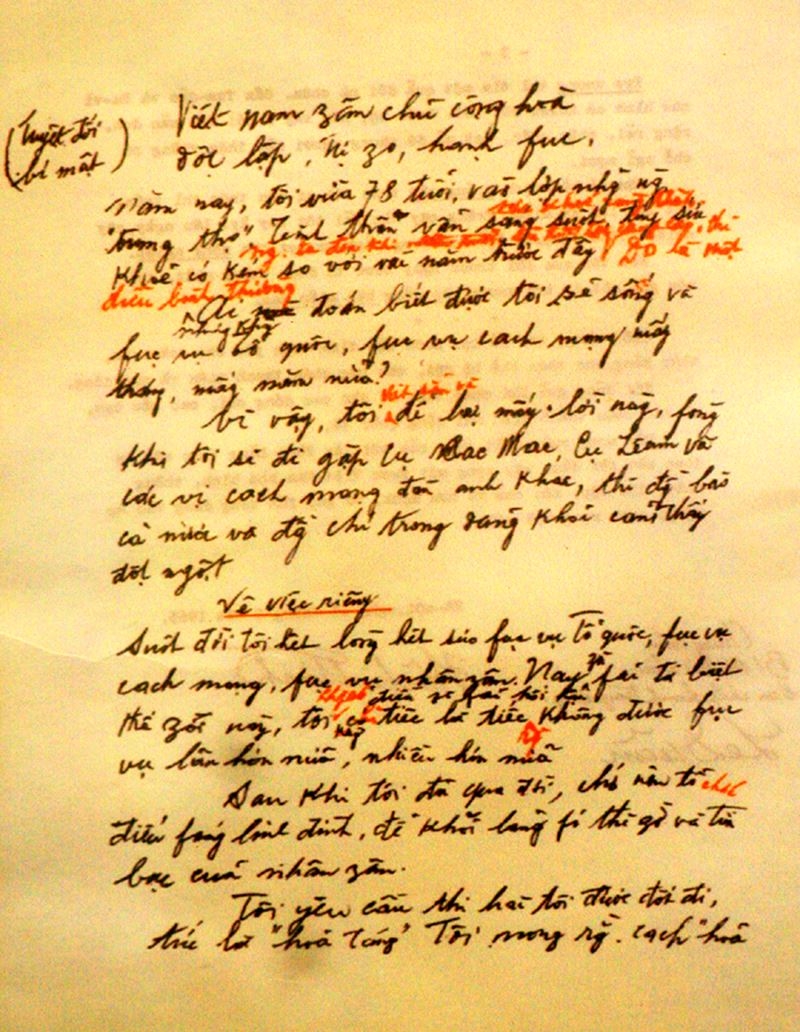 (Tuyệt đối
bí mật)
Việt nam zân chủ cộng hoà
độc lập, tự zo, hạnh fúc.
Năm nay, tôi vừa 78 tuổi, vào lớp nhữg ng
"trung thọ". Tinh thần vẫn sáng suốt, tuy sức
khoẻ có kém so với vài năm trước đây. Đó là một
điều bình thường
Ai mà đoán biết được tôi sẽ sống và
fục vụ tổ quốc, fục vụ cách mạng mấy
tháng, mấy năm nữa?
Vì vậy, tôi để lại mấy lời này, fòng
khi tôi sẽ đi gặp cụ Các Mác, Cụ Lênin và
các vị cách mạng đàn anh khác, thì đồg bào
cả nước và đồg chí trong đảng khỏi cảm thấy
đột ngột
Về việc riêng
Suốt đời tôi hết lòng hết sức fục vụ tổ quốc, fục vụ
cách mạng, fục vụ nhân zân. Nay zù fải từ biệt
thế zới này, tôi không có điều gì fải hối hận
chỉ tiếc là tiếc không được fục
vụ lâu hơn nữa, nhiều hơn nữa
Sau khi tôi đã qua đời, chớ nên tổ chức
điếu fúng linh đình, để khỏi lãng fí thì zờ và tiền
bạc của nhân zân.
Tôi yêu cầu thi hài tôi được đốt đi,
tức là "hoả táng". Tôi mong rằg cách "hoả